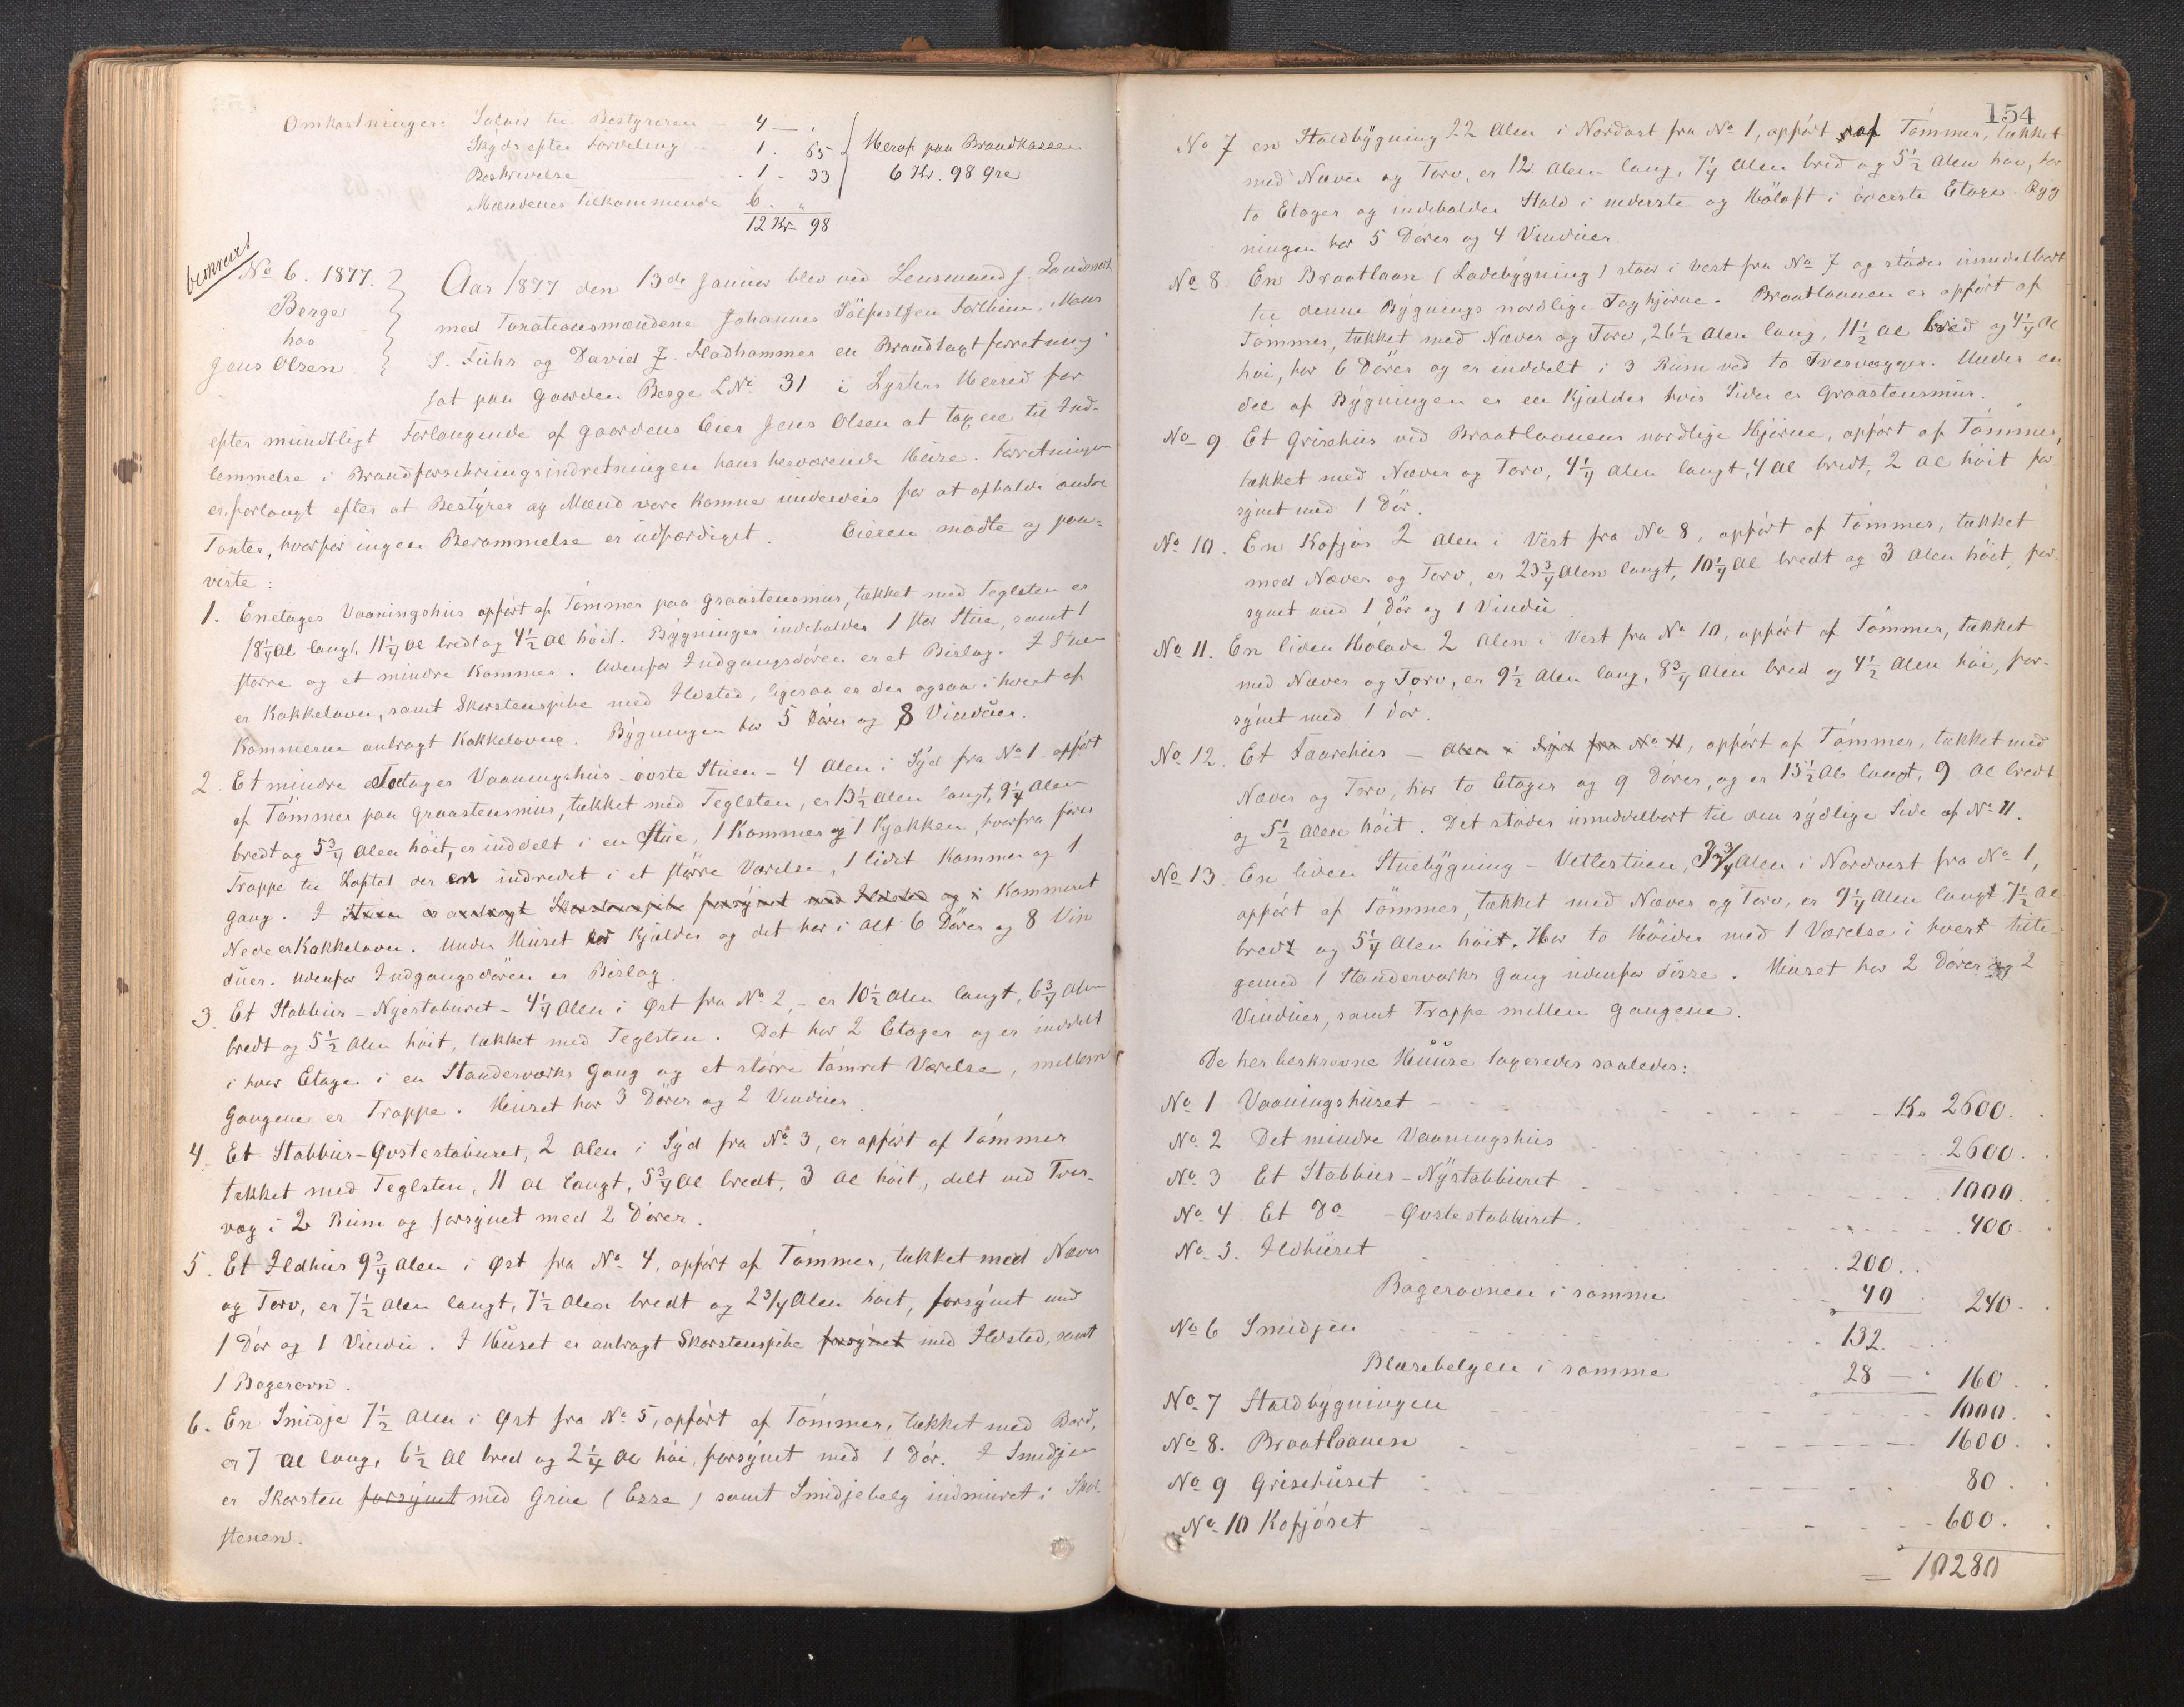 Omkostninger: Salair til Bestyreren 4 — .
Skyds efter Fordeling 1. 65 Heraf paa Brandkassen
Beskrivelse 1. 33 6 Kr. 98 Øre
Mændenes tilkommende 6. "
12 Kr 98
beskrevet
No 6. 1877.
Berge
hos
Jens Olsen
Aar 1877 den 13de Januar blev ved Lensmand J.
med Taxationsmændene Johannes
S. Fuhr og David J. Fladhammer en Brandtaxtforretning
sat paa Gaarden Berge LNo 31 i Lysters Herred for
efter mundtligt Forlangende af Gaardens Eier Jens Olsen at taxere til Ind-
lemmelse i Brandforsikringsindretningen hans herværende Huse. Forretningen
er forlangt efter at Bestyrer og Mænd vare komne underveis for at afholde andre
Taxter, hvorfor ingen Berammelse er udfærdiget. Eieren mødte og paa-
viste:
1. Enetages Vaaningshus opført af Tømmer paa Graastensmur, tækket med Teglsten er
18 1/4 Al langt, 11 1/4 Al bredt og 4 1/2 Al høit. Bygningen indeholder 1 stor Stue, samt 1
større og et mindre Kammer. Udenfor Indgangsdøren er et Bislag. I Stuen
er Kakkelovn, samt Skorstenspibe med Ildsted, ligesaa er der ogsaa i hvert af
Kammerne anbragt Kakkelovne. Bygningen har 5 Døre og 8 Vinduer.
2. Et mindre Toetages Vaaningshus - øvste Stuen - 4 Alen i Syd fra No 1 opført
af Tømmer paa Graastensmur, tækket med Teglsten, er 13 1/2 Alen langt, 9 1/4 Alen
bredt og 5 3/4 Alen høit, er inddelt i en Stue, 1 Kammer og 1 Kjøkken, hvorfra fører
Trappe til Loftet der er indredet i et større Værelse, 1 lidet Kammer og 1
Gang. I Stuen er anbragt Skorstenspibe forsynet med Ildsted og i Kammeret
Nede er Kakkelovn. Under Huset er Kjælder og det har i alt 6 Døre og 8 Vin
duer. Udenfor Indgangsdøren er Bislag.
3. Et Stabbur - Nyestaburet - 4 1/4 Alen i Øst fra No 2, - er 10 1/2 Alen langt, 6 3/4 Alen
bredt og 5 1/2 Alen høit, tækket med Teglsten. Det har 2 Etager og er inddelt
i hver Etage i en Standerværks Gang og et større tømret Værelse, mellem
Gangene er Trappe. Huset har 3 Døre og 2 Vinduer
4. Et Stabbur - Øvstestaburet, 2 Alen i Syd fra No 3, er opført af Tømmer
tækket med Teglsten, 11 Al langt, 5 3/4 Al bredt, 3 Al høit, delt ved Tver-
væg i 2 Rum og forsynet med 2 Døre.
5. Et Ildhus 9 3/4 Alen i Øst fra No 4, opført af Tømmer, tækket med Næver
og Torv, er 7 1/2 Alen langt, 7 1/2 Alen bredt og 2 3/4 Alen høit, forsynet med
1 Dør og 1 Vindu. I Huset er anbragt Skorstenspibe forsynet med Ildsted, samt
1 Bagerovn.
6. En Smidje 7 1/2 Alen i Øst fra No 5, opført af Tømmer, tækket med Bord,
er 7 Al lang, 6 1/2 Al bred og 2 1/4 Al høi, forsynet med 1 Dør. I Smidjen
er Skorsten forsynet med Grue (Esse) samt Smidjebelg indmuret i Skor
stenen.
154
No 7 en Staldbygning 22 Alen i Nordost fra No 1, opført af Tømmer, tækket
med Næver og Torv, er 12 Alen lang, 7 1/4 Alen bred og 5 1/2 Alen høi, har
to Etager og indeholder Stald i nederste og Høloft i øverste Etage. Byg
ningen har 5 Døre og 4 Vinduer.
No 8. En Braatlaan (Ladebygning) staar i Vest fra No 7 og støder umiddelbart
til denne Bygnings nordlige Taghjørne. Braatlaanen er opført af
Tømmer, tækket med Næver og Torv, 26 1/2 Alen lang, 11 1/2 Al bred og 4 1/4 Al
høi, har 6 Døre og er inddelt i 3 Rum ved to Tvervægger. Under en
del af Bygningen er en Kjælder hvis Sider er Graastensmur.
No 9. Et Grisehus ved Braatlaanens nordlige Hjørne, opført af Tømmer,
tækket med Næver og Torv, 4 1/4 Alen langt, 4 Al bredt, 2 Al høit for
synet med 1 Dør.
No 10. En Kofjøs 2 Alen i Vest fra No 8, opført af Tømmer, tækket
med Næver og Torv, er 23 3/4 Alen langt, 10 1/4 Al bredt og 3 Alen høit, for
synet med 1 Dør og 1 Vindu
No 11. En liden Hølade 2 Alen i Vest fra No 10, opført af Tømmer, tækket
med Næver og Torv, er 9 1/2 Alen lang, 8 3/4 Alen bred og 4 1/2 Alen høi, for-
synet med 1 Dør.
No 12. Et Saarehus — Alen i Syd fra No 11, opført af Tømmer, tækket med
Næver og Torv, har to Etager og 9 Døre, og er 15 1/2 Al langt, 9 Al bredt
og 5 1/2 Alen høit. Det støder umiddelbart til den sydlige Side af No 11.
No 13. En liden Stuebygning - Vetlestuen, 3 3/4 Alen i Nordvest fra No 1,
opført af Tømmer, tækket med Næver og Torv, er 9 1/4 Alen langt 7 1/2 Al
bredt og 5 1/4 Alen høit. Har to Høider med 1 Værelse i hvert tilli-
gemed 1 Standerværks Gang udenfor disse. Huset har 2 Døre og 2
Vinduer, samt Trappe mellem Gangene.
De her beskrevne Huuse taxeredes saaledes:
No 1 Vaaningshuset - Kr 2600.
No 2 Det mindre Vaaningshus 2600.
No 3 Et Stabbur - Nystabburet 1000.
No 4 Et Do - Øvstestabburet. 400.
No 5. Ildhuset 200.
Bagerovnen i samme 40 240.
No 6 Smidjen 132.
Blæsebelgen i samme 28 — 160.
No 7 Staldbygningen 1000.
No 8. Braatlaanen 1600.
No 9 Grisehuset 80.
No 10 Kofjøset 600.
= 10280